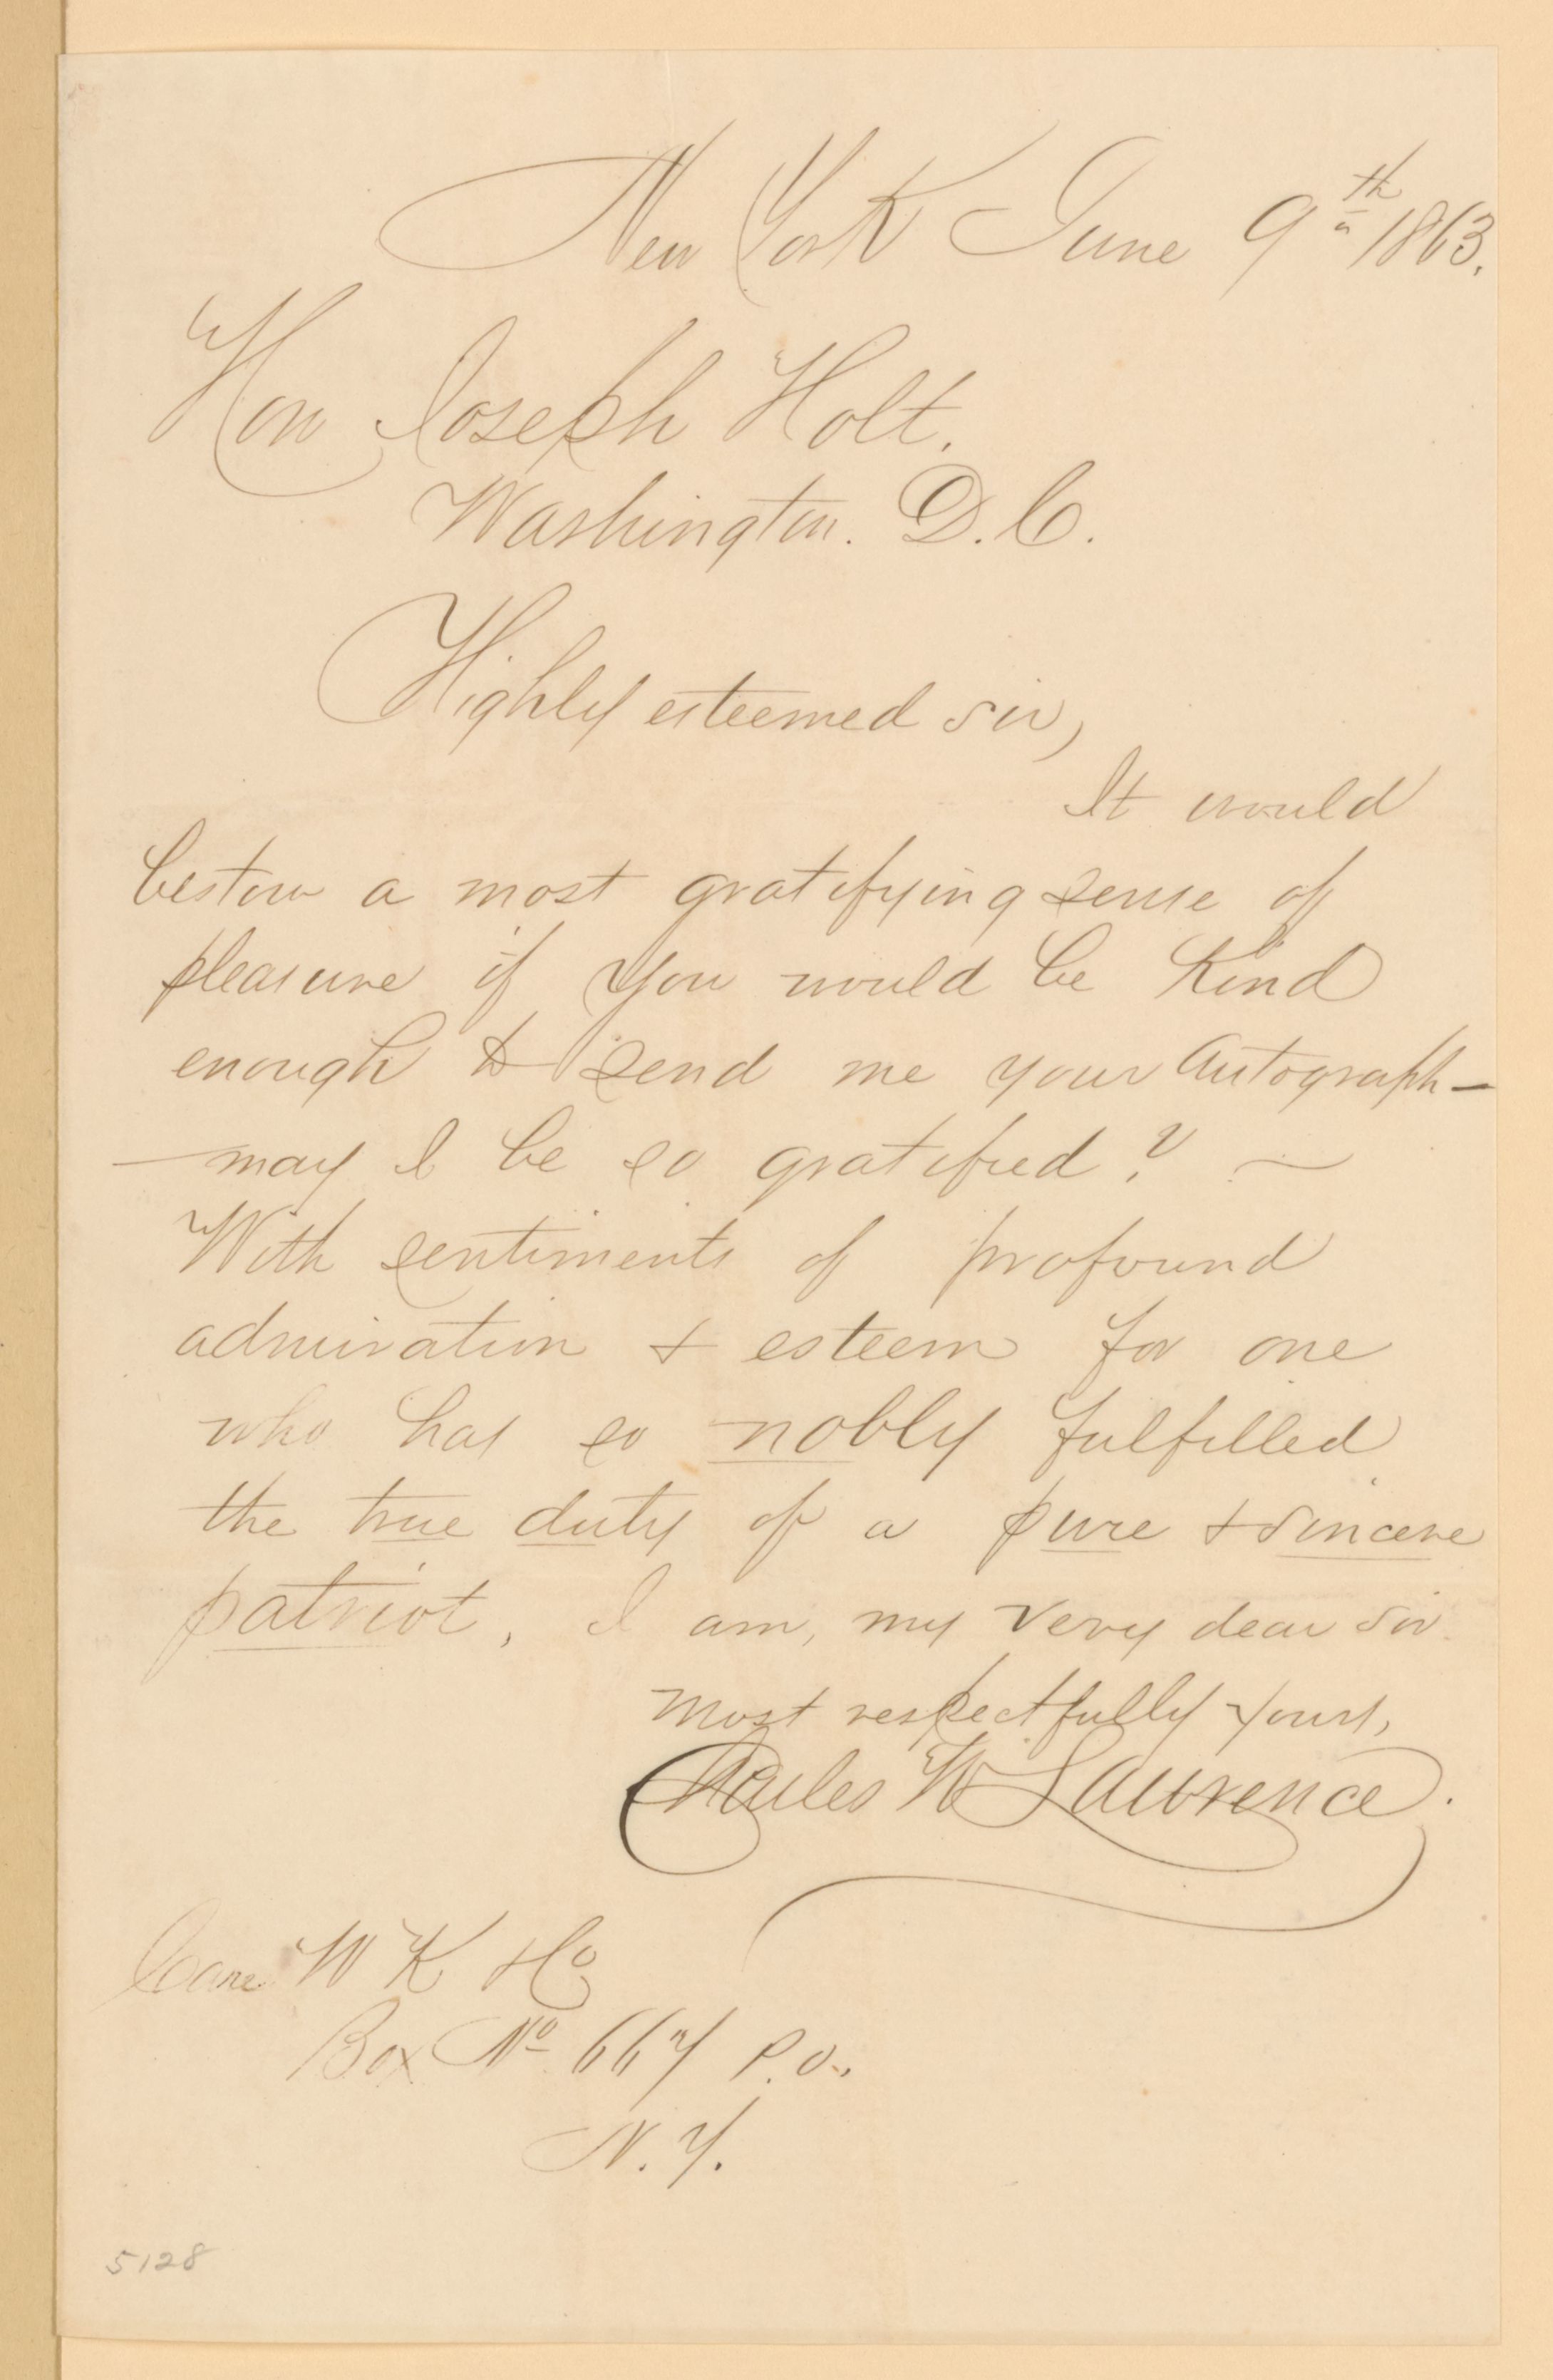 New York June 9th 1863.
Hon Joseph Holt.
Washington. D.C.
Highly esteemed sir,
It would
bestow a most gratifying sense of
pleasure if you would be kind
enough to send me your Autograph—
—may I be so gratified? —
With sentiments of profound
admiration & esteem for one
who has so nobly fulfilled
the true duty of a pure & sincere
patriot, I am, my very dear sir
most respectfully yours,
Charles W Lawrence.
Care W K
Box No 667 P.O.
N.Y.
5128